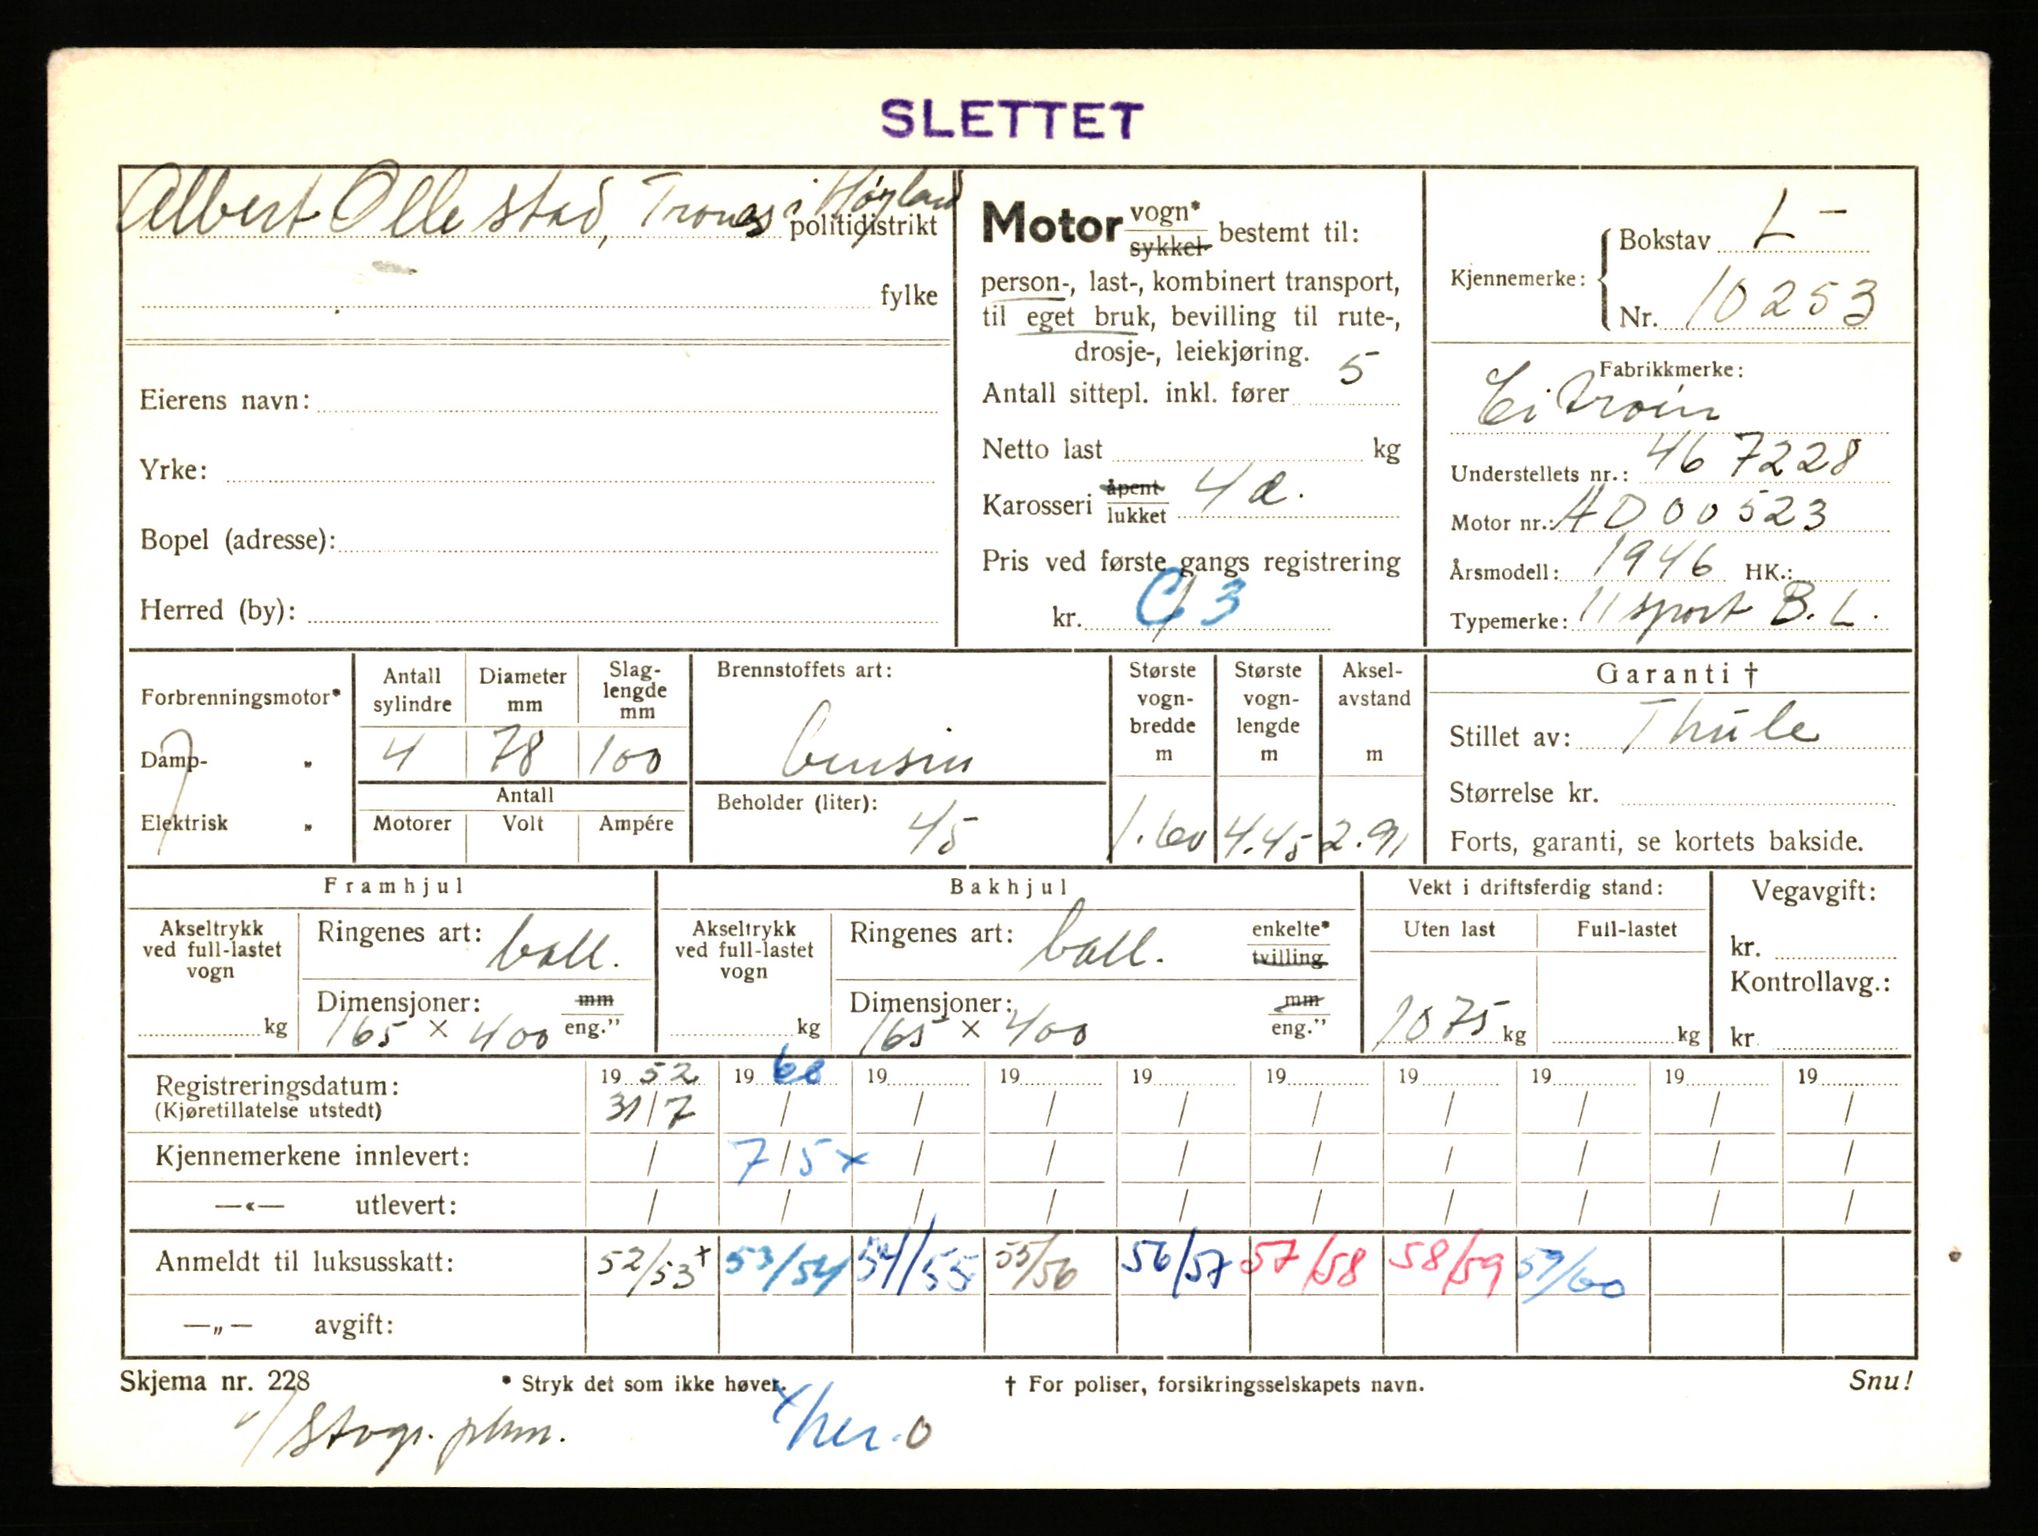 SLETTET
Albert Ollestad, Trones i Høyland
politidistrikt
fylke
Eierens navn:
Yrke:
Bopel (adresse):
Herred (by):
Motor vogn* sykkel bestemt til:
person-, last-, kombinert transport,
til eget bruk, bevilling til rute-,
drosje-, leiekjøring.
Antall sittepl. inkl. fører 5
Netto last kg
Karosseri åpent lukket 4 d.
Pris ved første gangs registrering
kr. C/3
Kjennemerke: Bokstav L-
Nr. 10253
Fabrikkmerke:
Citroin
Understellets nr.: 467228
Motor nr.: AD00523
Årsmodell: 1946 HK.:
Typemerke: 11 sport B.L.
Forbrenningsmotor*
Damp- „
Elektrisk „
Antall sylindre Diameter mm Slaglengde mm
4 78 100
Antall
Motorer Volt Ampére
Brennstoffets art:
bensin
Beholder (liter):
45
Største vognbredde m 1.60
Største vognlengde m 4.45
Akselavstand m 2.91
Garanti †
Stillet av: Thule
Størrelse kr.
Forts, garanti, se kortets bakside.
Framhjul
Akseltrykk ved full-lastet vogn kg
Ringenes art: ball.
Dimensjoner: mm eng."
165 × 400
Bakhjul
Akseltrykk ved full-lastet vogn kg
Ringenes art: ball. enkelte* tvilling
Dimensjoner: mm eng."
165 × 400
Vekt i driftsferdig stand:
Uten last Full-lastet
1075 kg kg
Vegavgift:
kr.
Kontrollavg.:
kr.
Registreringsdatum: 19 52 19 60 19 19 19 19 19 19 19 19
(Kjøretillatelse utstedt) 31/7 / / / / / / / / /
Kjennemerkene innlevert: / 7/5 x / / / / / / / /
—«— utlevert: / / / / / / / / / /
Anmeldt til luksusskatt: 52/53+ 53/54 54/55 55/56 56/57 57/58 58/59 59/60
—„— avgift:
Skjema nr. 228 * Stryk det som ikke høver. † For poliser, forsikringsselskapets navn. Snu!